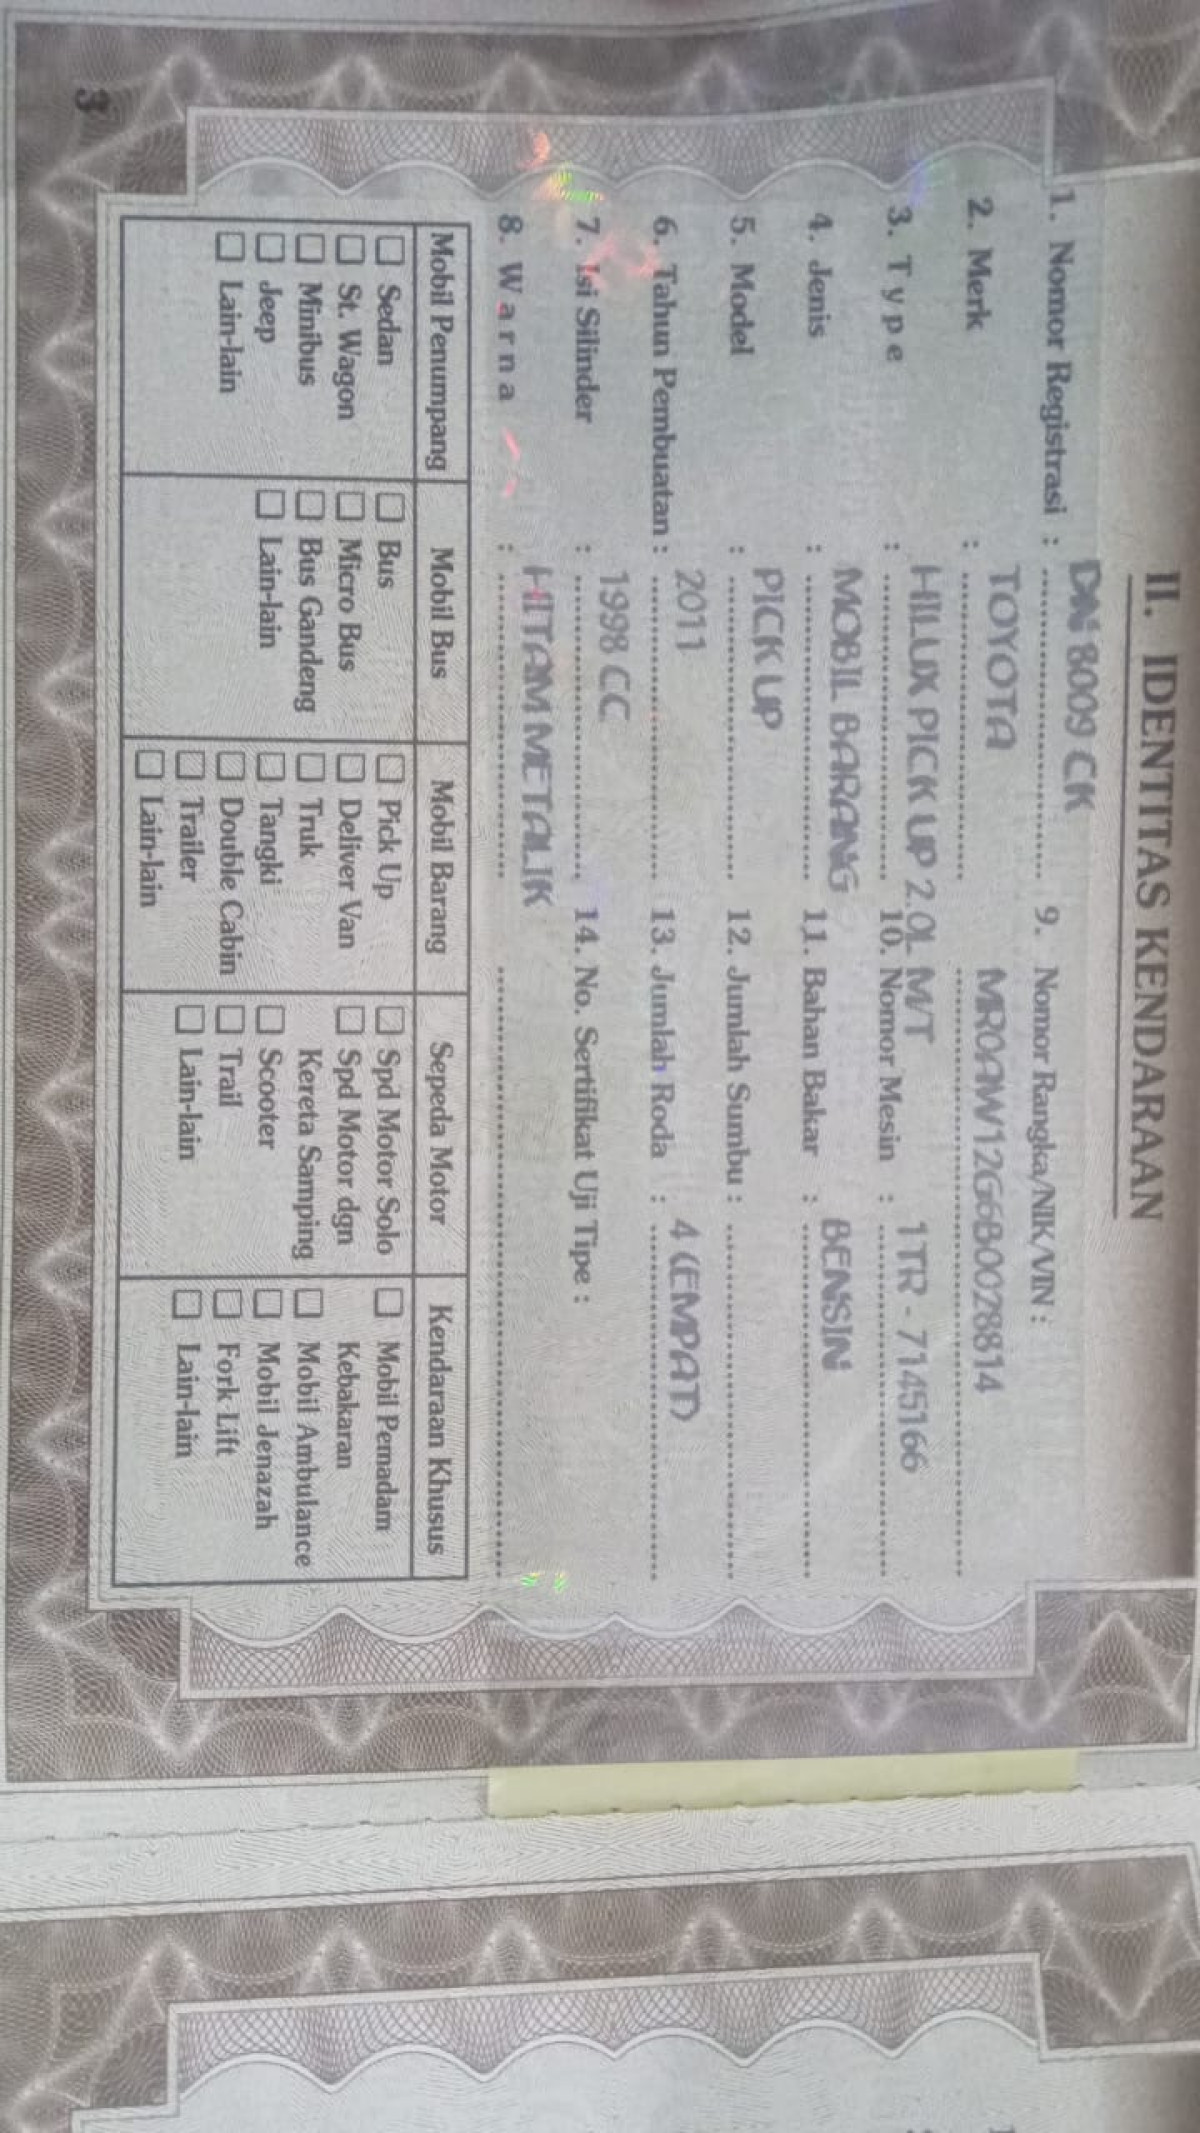 II. IDENTITAS KENDARAAN
1. Nomor Registrasi : DN 8009 CK
2. Merk : TOYOTA
3. Type : HILUX PICK UP 2.0L M/T
4. Jenis : MOBIL BARANG
5. Model : PICK UP
6. Tahun Pembuatan : 2011
7. Isi Silinder : 1998 CC
8. Warna : HITAM METALIK
9. Nomor Rangka/NIK/VIN :
MR0AW12G6B0028814
10. Nomor Mesin : 1TR - 7145166
11. Bahan Bakar : BENSIN
12. Jumlah Sumbu :
13. Jumlah Roda : 4 (EMPAT)
14. No. Sertifikat Uji Tipe :
Mobil Penumpang
Sedan
St. Wagon
Minibus
Jeep
Lain-lain
Mobil Bus
Bus
Micro Bus
Bus Gandeng
Lain-lain
Mobil Barang
Pick Up
Deliver Van
Truk
Tangki
Double Cabin
Trailer
Lain-lain
Sepeda Motor
Spd Motor Solo
Spd Motor dgn
Kereta Samping
Scooter
Trail
Lain-lain
Kendaraan Khusus
Mobil Pemadam
Kebakaran
Mobil Ambulance
Mobil Jenazah
Fork Lift
Lain-lain
3